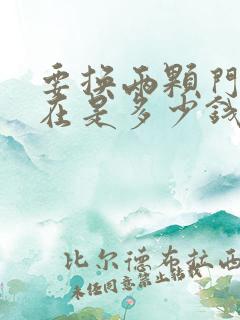 要换两颗門
在是多少錢
比尔德布拉西
未经同意禁止转载